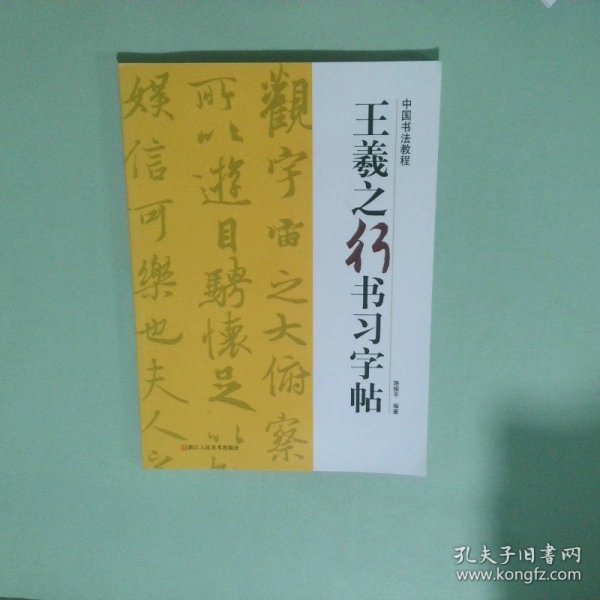 中国书法教程
王羲之行书习字帖
编著
觀宇宙之大俯察
所以遊目騁懷足以
娱信可樂也夫人之
浙江人民美术出版社
孔夫子旧书网
www.kongfz.com